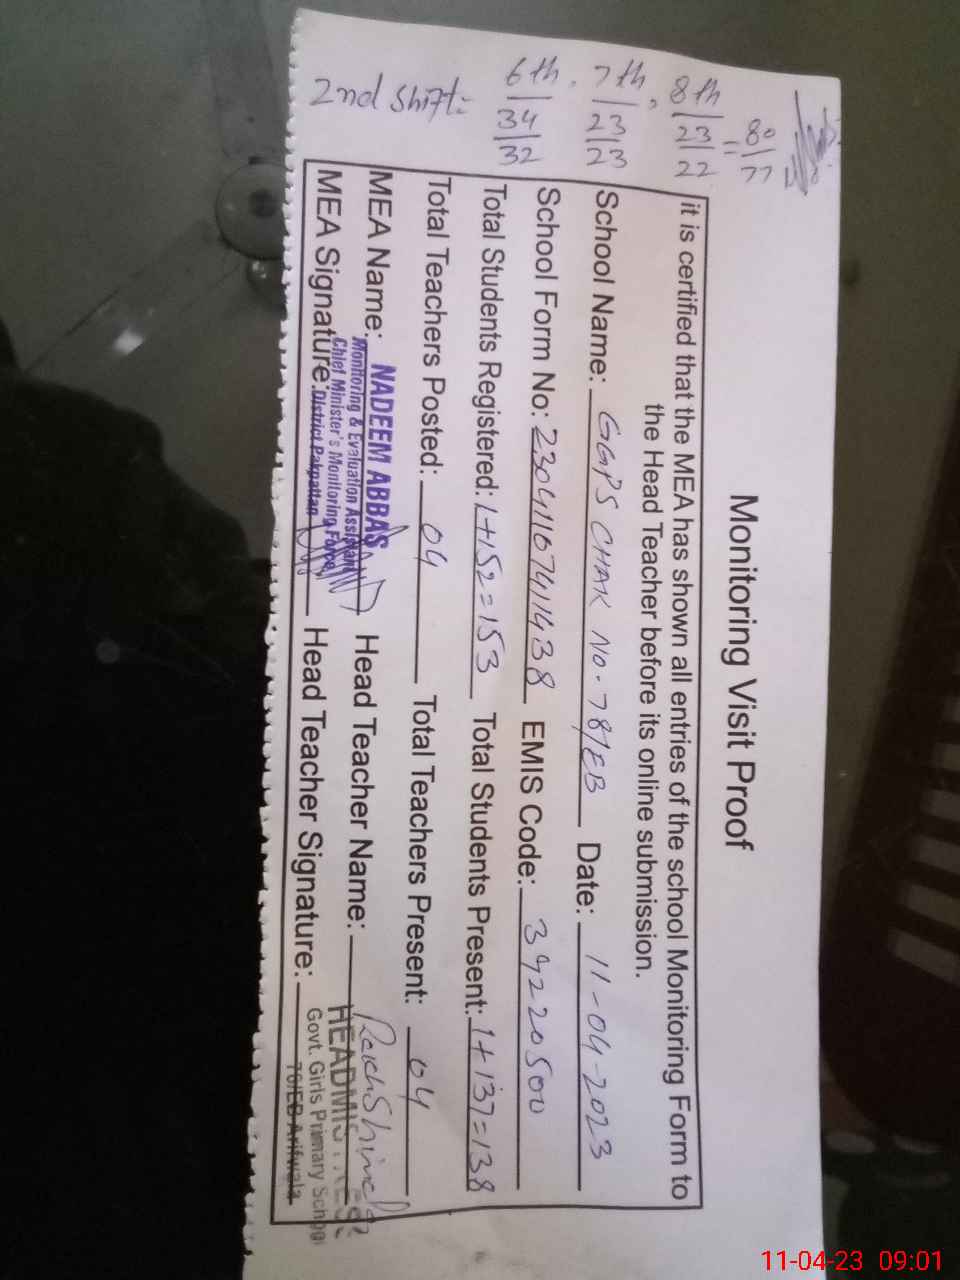 Monitoring Visit Proof
it is certified that the MEA has shown all entries of the school Monitoring Form to
the Head Teacher before its online submission.
School Name: GGPS CHAK NO. 78/EB Date: 11-04-2023
School Form No: 2304116741438 EMIS Code: 39220500
Total Students Registered: 1+152=153 Total Students Present: 1+137=138
Total Teachers Posted: 04 Total Teachers Present: 04
MEA Name: NADEEM ABBAS Head Teacher Name:
Monitoring & Evaluation Assistant
Chief Minister's Monitoring Force,
District Pakpattan
MEA Signature: Head Teacher Signature:
HEADMISTRESS
Govt. Girls Primary School
78/EB Arifwala
2nd Shift:- 6th, 7th, 8th
34 23 23 = 80
32 23 22 77
11-04-23 09:01